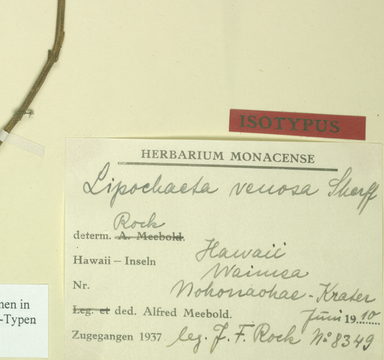 ISOTYPUS
HERBARIUM MONACENSE
Lipochaeta venosa Sherff
Rock
determ. A. Meebold.
Hawaii
Hawaii – Inseln
Waimea
Nr.
Nohonaohae - Krater
Leg. et ded. Alfred Meebold.
Juni 1910
Zugegangen 1937
leg. J. F. Rock No 8349
men in
-Typen